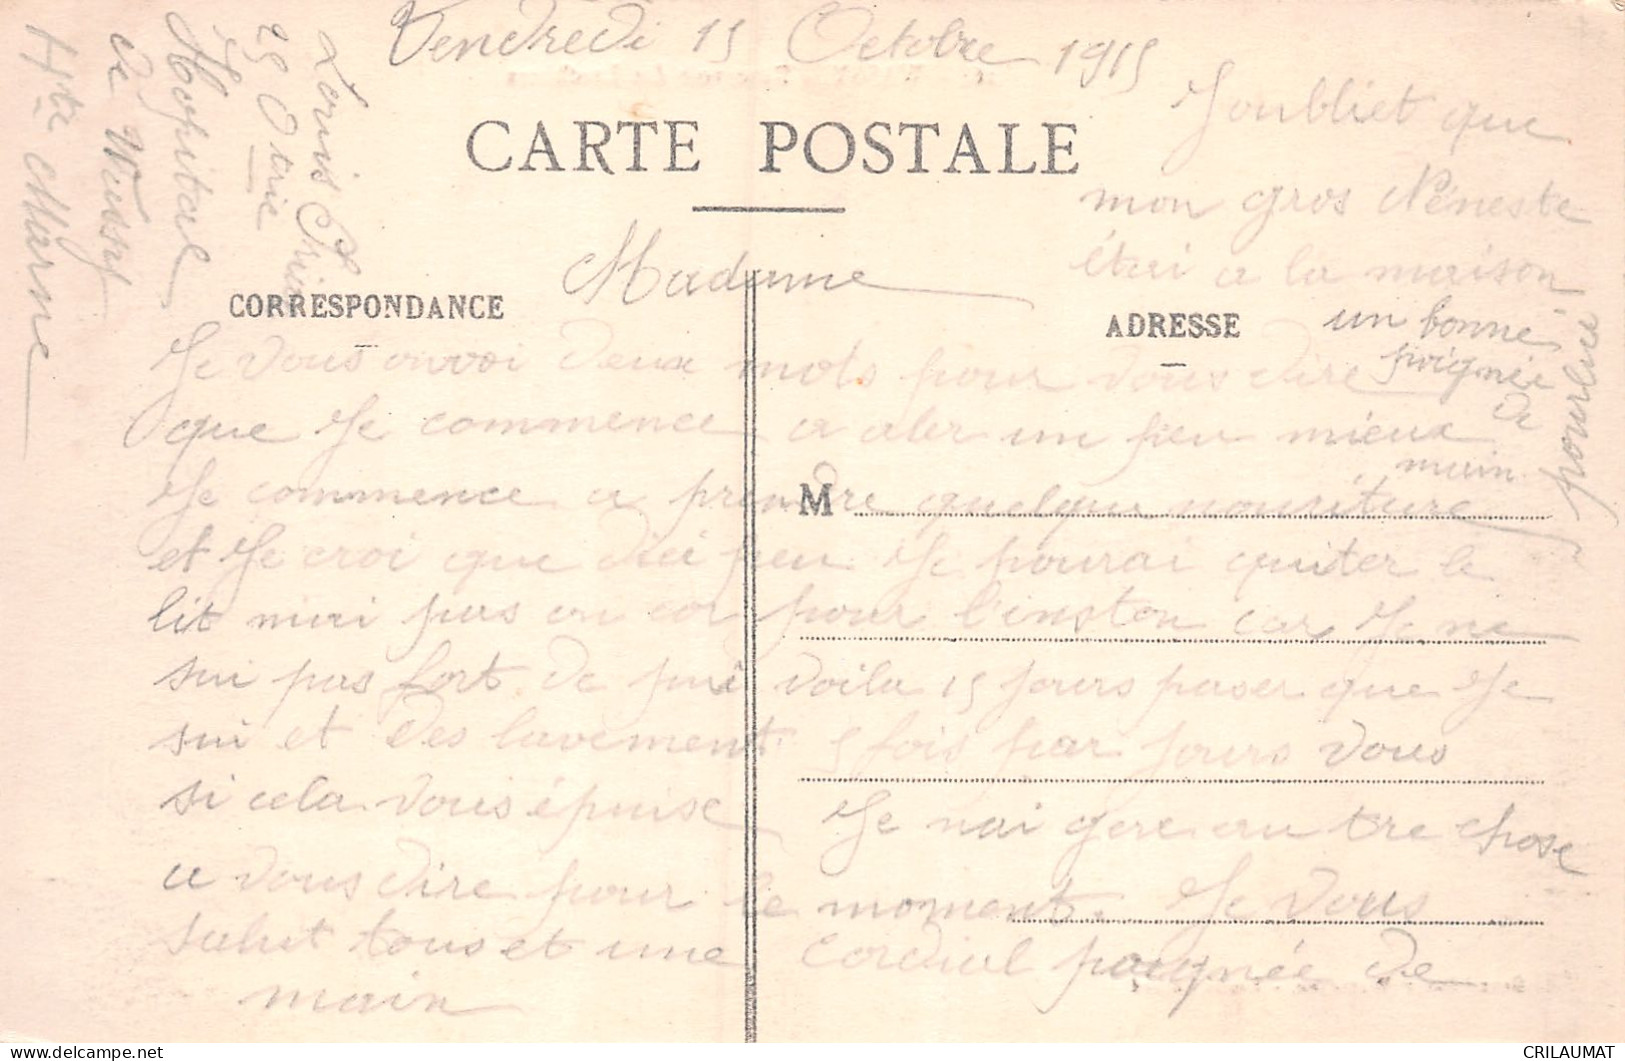 Vendredi 15 Octobre 1915
CARTE POSTALE
Madame
CORRESPONDANCE
ADRESSE
M
Je vous envoi deux mots pour vous dire
que Je commence a aler un peu mieux
Je commence a prendre quelque nouriture
et Je croi que dici peu Je pourai quiter le
lit mai pas en cor pour l'insten car Je ne
sui pas fort de pui voila 15 jours paser que Je
sui et des lavement 5 fois par Jours vous
si cela vous épuise Je nai gere au tre chose
a vous dire pour le moment. Je vous
salut tous et une cordial poignée de
main
Joubliet que
mon gros Néneste
étai a la maison
un bonne
poignée
de
main
pour lui
Louis
25 D
Hopital
de Wassy
Hte Marne
CRILAUMAT